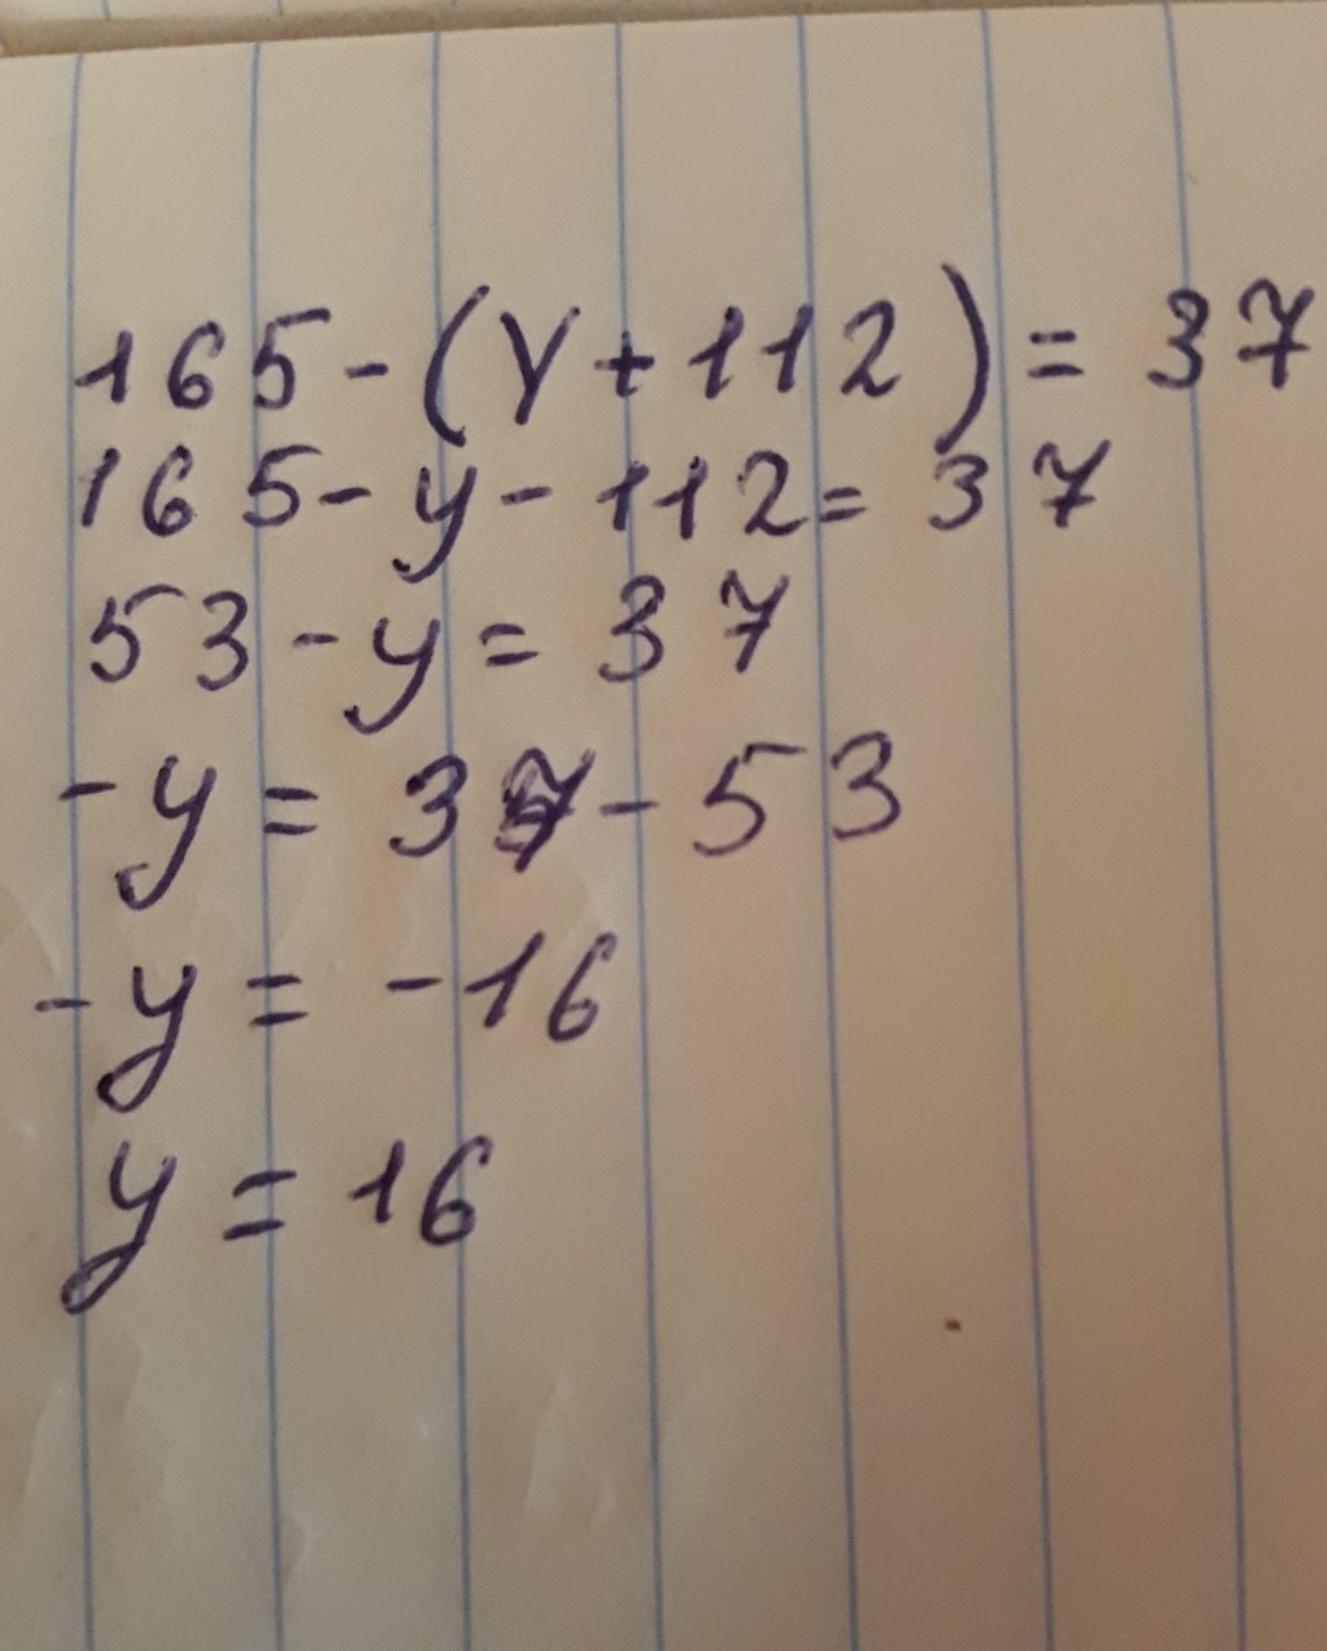 165-(y+112)=37
165-y-112=37
53-y=37
-y=37-53
-y=-16
y=16